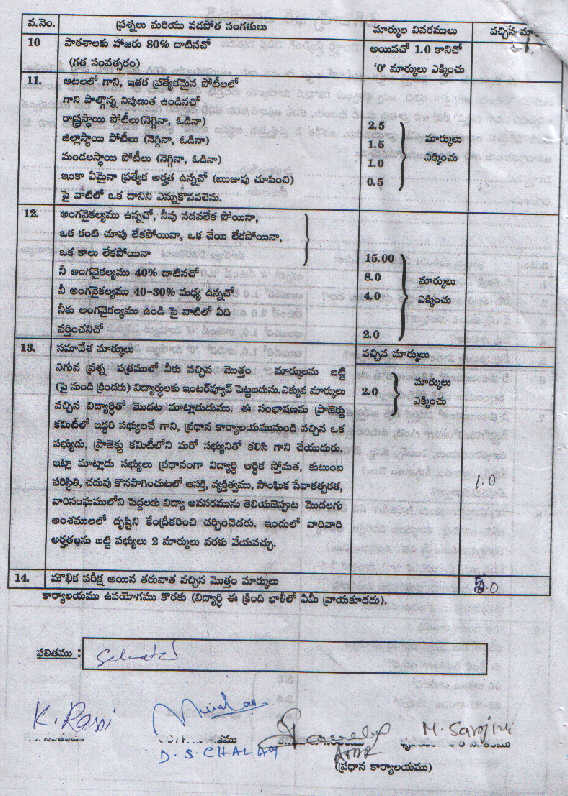 వ.నెం. ప్రశ్నలు మరియు వడపోత సంగతులు మార్కుల వివరములు వచ్చిన
10 పాఠశాలకు హాజరు 80% దాటినచో అయినచో 1.0 కానిచో
(గత సంవత్సరం) '0' మార్కులు ఎక్కించు
11. ఆటలలో గాని, ఇతర ప్రత్యేకమైన పోటీలలో
గాని పాల్గొన్న నిపుణత ఉండినచో
రాష్ట్రస్థాయి పోటీలు (నెగ్గినా, ఓడినా) 2.5 మార్కులు
జిల్లాస్థాయి పోటీలు (నెగ్గినా, ఓడినా) 1.5 ఎక్కించు
మండలస్థాయి పోటీలు (నెగ్గినా, ఓడినా) 1.0
ఇంకా ఏమైనా ప్రత్యేక అర్హత ఉన్నచో (ఋజువు చూపించి) 0.5
పై వాటిలో ఒక దానిని ఎన్నుకొనవలెను.
12. అంగవైకల్యము ఉన్నచో, నీవు నడవలేక పోయినా,
ఒక కంటి చూపు లేకపోయినా, ఒక చేయి లేకపోయినా,
ఒక కాలు లేకపోయినా 15.00
నీ అంగవైకల్యము 40% దాటినచో 8.0 మార్కులు
నీ అంగవైకల్యము 40-30% మధ్య ఉన్నచో 4.0 ఎక్కించు
నీకు అంగవైకల్యము ఉండి పై వాటిలో ఏది
వర్తించనిచో 2.0
13. సమావేశ మార్కులు వచ్చిన మార్కులు
ఎగువ ప్రశ్న పత్రములో నీకు వచ్చిన మొత్తం మార్కులను బట్టి మార్కులు
(పై నుండి క్రిందకు) విద్యార్థులకు ఇంటర్వ్యూవ్ పెట్టబడును. ఎక్కువ మార్కులు 2.0 ఎక్కించు
వచ్చిన విద్యార్థితో మొదట మాట్లాడుదుము. ఈ సంభాషణము ప్రాజెక్టు
కమిటీలో ఇద్దరు సభ్యులచే గాని, ప్రధాన కార్యాలయమునుండి వచ్చిన ఒక
సభ్యుడు, ప్రాజెక్టు కమిటీలోని మరో సభ్యునితో కలిసి గాని చేయుదురు.
ఇట్లా మాట్లాడు సభ్యులు ప్రధానంగా విద్యార్థి ఆర్థిక స్తోమత, కుటుంబ
పరిస్థితి, చదువు కొనసాగించుటలో ఆసక్తి, వ్యక్తిత్వము, సాంఘిక సేవాతత్పరత, 1.0
వారిసంఘములోని పెద్దలకు విద్యా అవసరమును తెలియచెప్పుట మొదలగు
అంశములలో దృష్టిని కేంద్రీకరించి చర్చించెదరు. ఇందులో వారివారి
అర్హతలను బట్టి సభ్యులు 2 మార్కులు వరకు వేయవచ్చు.
14. మౌఖిక పరీక్ష అయిన తరువాత వచ్చిన మొత్తం మార్కులు
కార్యాలయము ఉపయోగము కొరకు (విద్యార్థి ఈ క్రింది ఖాళీలో ఏమీ వ్రాయకూడదు).
ఫలితము : Selected
K. Rani M. Sarojini
D. S. CHALAM
(ప్రధాన కార్యాలయము)